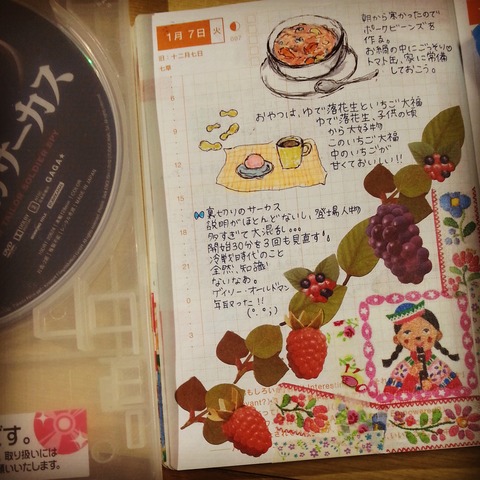 サーカス
GAGA
1月7日 火
旧:十二月七日
七草
朝から寒かったので
ポークビーンズを
作る。
お鍋の中にごっそり♡
トマト缶、家に常備
しておこう。
おやつは、ゆで落花生といちご大福
ゆで落花生、子供の頃
から大好物
このいちご大福
中のいちごが
甘くておいしい!!
裏切りのサーカス
説明がほとんどないし、登場人物
多すぎて大混乱。。。
開始30分を3回も見直す。
冷戦時代のこと
全然、知識
ないなあ。
ゲイリー・オールドマン
年取った!!
6
9
12
15
18
21
0
3
す。
取り扱いには
願いいたします。